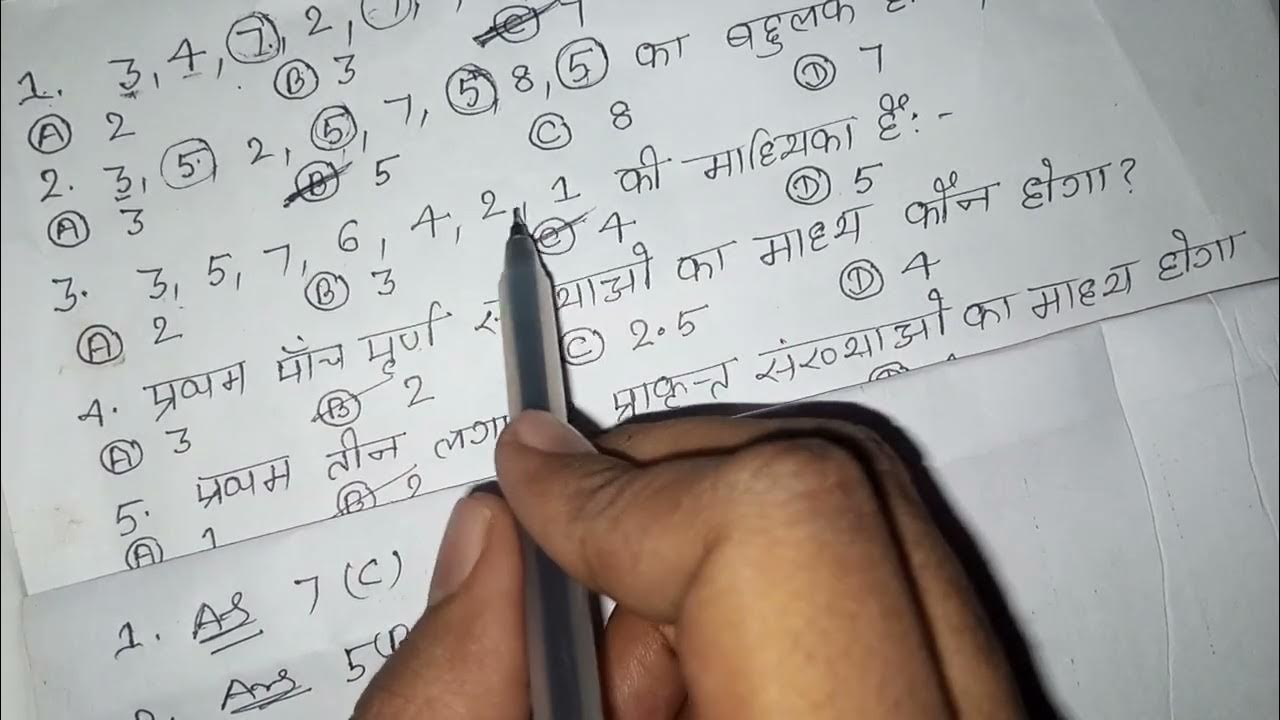 1. 3, 4, 7, 2,
Ⓐ 2 Ⓑ 3 Ⓒ 7
2. 3, 5, 2, 5, 7, 5, 8, 5 का बहुलक
Ⓐ 3 Ⓑ 5 Ⓒ 8 Ⓓ 7
3. 3, 5, 7, 6, 4, 2, 1 की माध्यिका हैं:-
Ⓐ 2 Ⓑ 3 Ⓒ 4 Ⓓ 5
4. प्रथम पाँच पूर्ण का माध्य कौन होगा?
Ⓐ 3 Ⓑ 2 Ⓒ 2.5 Ⓓ 4
5. प्रथम तीन प्राकृत संख्याओं का माध्य होगा
Ⓐ 1 Ⓑ 2
1. Ans 7 (C)
Ans 5(B